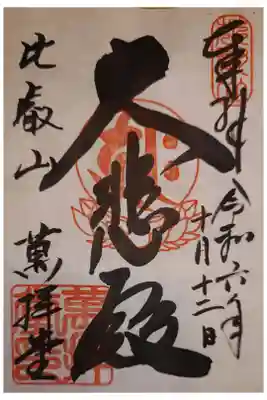 奉拝 令和六年
十月十二日
大悲殿
比叡山 萬拝堂